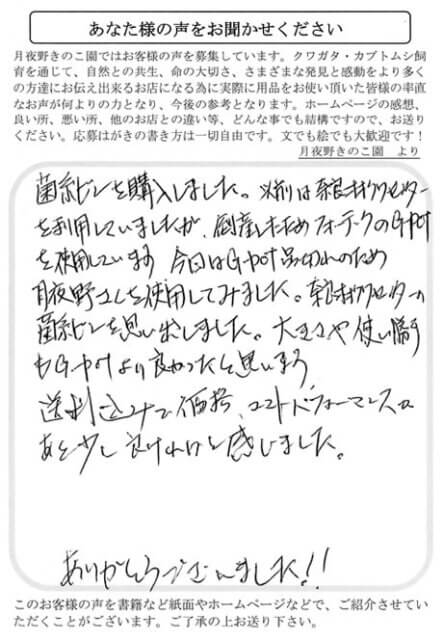 あなた様の声をお聞かせください
月夜野きのこ園ではお客様の声を募集しています。クワガタ・カブトムシ飼
育を通じて、自然との共生、命の大切さ、さまざまな発見と感動をより多く
の方達にお伝え出来るお店になる為に実際に用品をお使い頂いた皆様の率直
なお声が何よりの力となり、今後の参考となります。ホームページの感想、
良い所、悪い所、他のお店との違い等、どんな事でも結構ですので、お送り
ください。応募はがきの書き方は一切自由です。文でも絵でも大歓迎です！
月夜野きのこ園　より
菌糸ビンを購入しました。以前は奈良オオクワセンター
を利用していましたが、倒産したためフォーテックのG-pot
を使用しています 今回はG-pot品切れのため
月夜野さんを使用してみました。奈良オオクワセンターの
菌糸ビンを思い出しました。大きさや使い勝手
もG-potより良かったと思います
送料込みで価格、コストパフォーマンスは
あと少し良ければと感じました。
ありがとうございました!!
このお客様の声を書籍など紙面やホームページなどで、ご紹介させてい
ただくことがございます。ご了承の上お送り下さい。